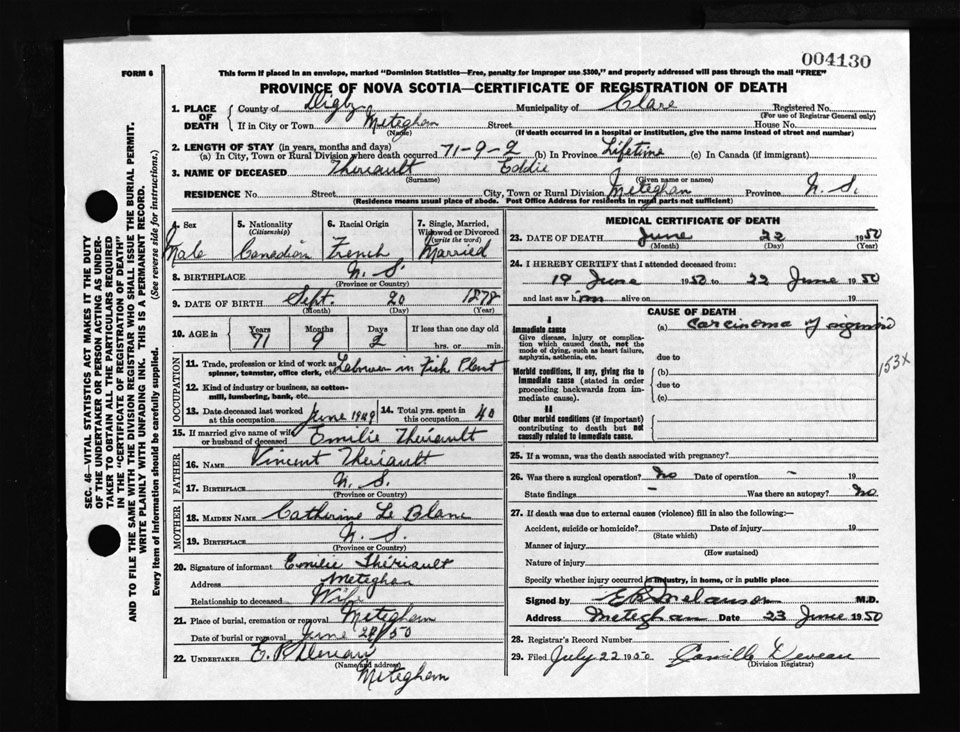 004130
FORM 6
This form if placed in an envelope, marked "Dominion Statistics—Free, penalty for improper use $300," and properly addressed will pass through the mail "FREE"
PROVINCE OF NOVA SCOTIA—CERTIFICATE OF REGISTRATION OF DEATH
1. PLACE OF DEATH County of Digby Municipality of Clare Registered No.
(For use of Registrar General only)
If in City or Town Meteghan Street House No.
(Name) (If death occurred in a hospital or institution, give the name instead of street and number)
2. LENGTH OF STAY (in years, months and days)
(a) In City, Town or Rural Division where death occurred 71-9-2 (b) In Province Lifetime (c) In Canada (if immigrant)
3. NAME OF DECEASED Theriault Eddie
(Surname) (Given name or names)
RESIDENCE No. Street City, Town or Rural Division Meteghan Province N.S.
(Residence means usual place of abode. Post Office Address for residents in rural parts not sufficient)
4. Sex 5. Nationality 6. Racial Origin 7. Single, Married,
(Citizenship) Widowed or Divorced
(write the word)
Male Canadian French Married
8. BIRTHPLACE N.S.
(Province or Country)
9. DATE OF BIRTH Sept. 20 1878
(Month) (Day) (Year)
10. AGE in Years Months Days If less than one day old
71 9 2 hrs. or min.
OCCUPATION
11. Trade, profession or kind of work as Labourer in Fish Plant
spinner, teamster, office clerk, etc.
12. Kind of industry or business, as cotton-
mill, lumbering, bank, etc.
13. Date deceased last worked at this occupation June 1949 14. Total yrs. spent in this occupation 40
15. If married give name of wife or husband of deceased Emilie Theriault
FATHER
16. NAME Vincent Theriault
17. BIRTHPLACE N.S.
(Province or Country)
MOTHER
18. MAIDEN NAME Catherine Le Blanc
19. BIRTHPLACE N.S.
(Province or Country)
20. Signature of informant Emilie Thériault
Address Meteghan
Relationship to deceased Wife
21. Place of burial, cremation or removal Meteghan
Date of burial or removal June 24/50
22. UNDERTAKER E. R. Deveau
(Name and address)
Meteghan
MEDICAL CERTIFICATE OF DEATH
23. DATE OF DEATH June 22 1950
(Month) (Day) (Year)
24. I HEREBY CERTIFY that I attended deceased from:
19 June 1950 to 22 June 1950
and last saw him alive on 19
CAUSE OF DEATH
I
Immediate cause (a) Carcinoma of sigmoid
Give disease, injury or complica-
tion which caused death, not the
mode of dying, such as heart failure,
asphyxia, asthenia, etc.
due to
153X
Morbid conditions, if any, giving rise to (b)
immediate cause (stated in order due to
proceeding backwards from im-
mediate cause). (c)
II
Other morbid conditions (if important)
contributing to death but not
causally related to immediate cause.
25. If a woman, was the death associated with pregnancy?
26. Was there a surgical operation? No Date of operation – 19
State findings – Was there an autopsy? No
27. If death was due to external causes (violence) fill in also the following:—
Accident, suicide or homicide? Date of injury 19
(State which)
Manner of injury
(How sustained)
Nature of injury
Specify whether injury occurred in industry, in home, or in public place
Signed by Melanson M.D.
Address Meteghan Date 23 June 1950
28. Registrar's Record Number
29. Filed July 22 1950 Camille Deveau
(Division Registrar)
SEC. 46—VITAL STATISTICS ACT MAKES IT THE DUTY
OF THE UNDERTAKER OR PERSON ACTING AS UNDER-
TAKER TO OBTAIN ALL THE PARTICULARS REQUIRED
IN THE "CERTIFICATE OF REGISTRATION OF DEATH"
AND TO FILE THE SAME WITH THE DIVISION REGISTRAR WHO SHALL ISSUE THE BURIAL PERMIT.
WRITE PLAINLY WITH UNFADING INK. THIS IS A PERMANENT RECORD.
Every item of Information should be carefully supplied. (See reverse side for instructions.)